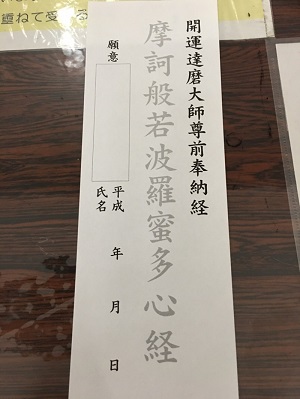 重ねて受
開運達磨大師尊前奉納経
摩訶般若波羅蜜多心経
願意
平成　年　月　日
氏名